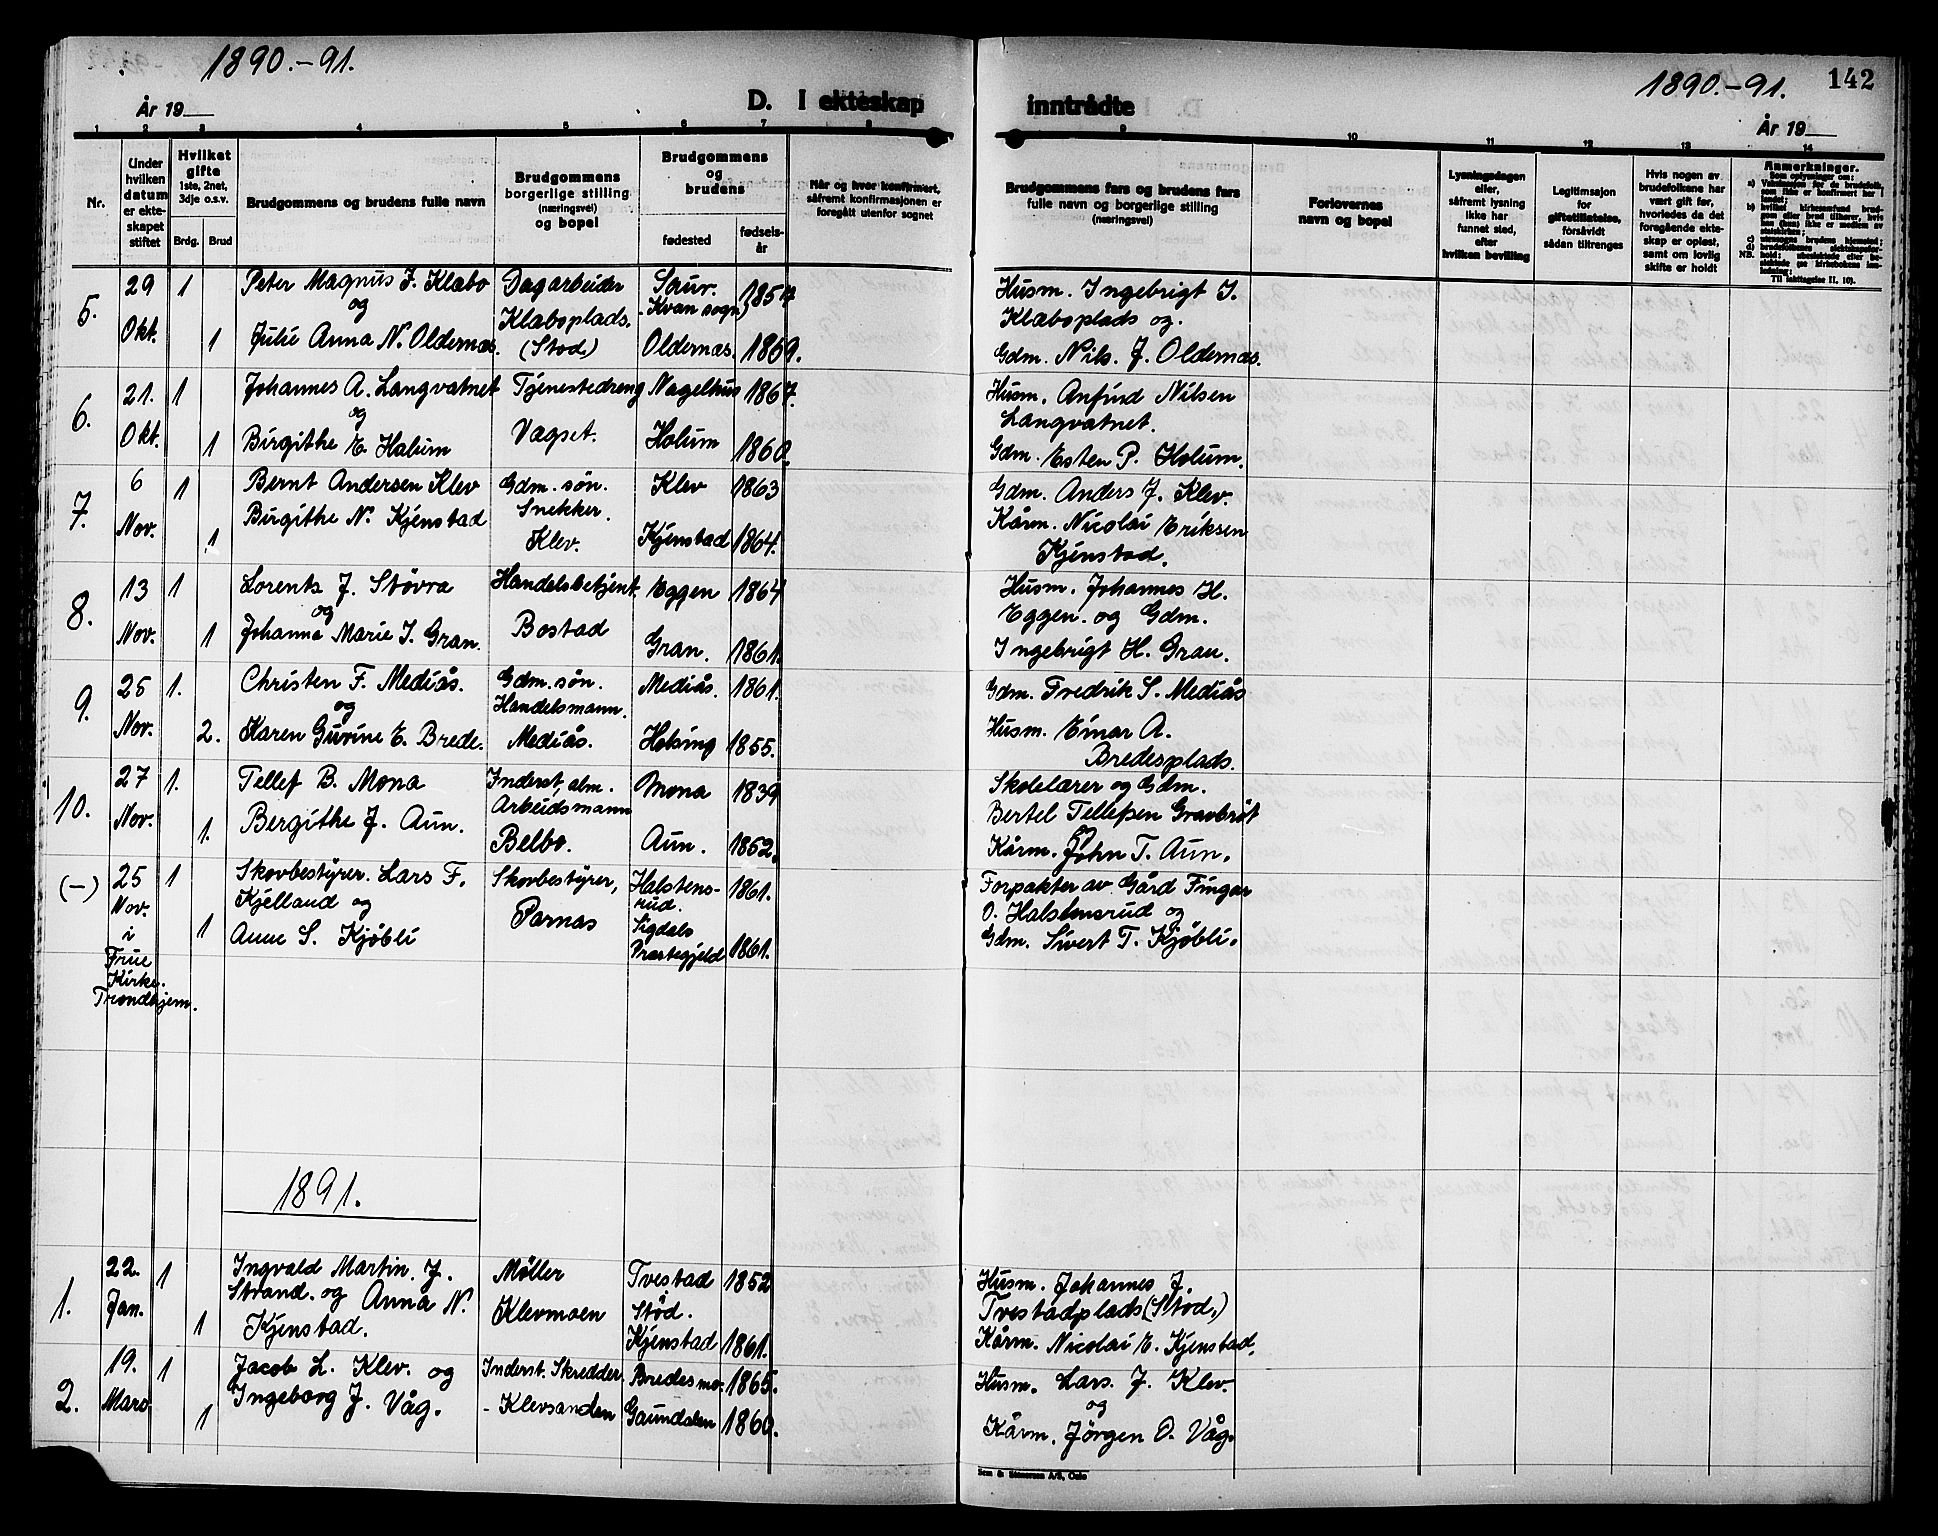 1890.-91.
1890.-91.
142
År 19
D. I ekteskap
inntrådte
År 19
1 2 3 4 5 6 7 8 9 10 11 12 13 14
Nr.
Under hvilken datum er ekteskapet stiftet
Hvilket gifte
1ste, 2net, 3dje o.s.v.
Brdg. Brud
Brudgommens og brudens fulle navn
Brudgommens borgerlige stilling (næringsvei) og bopel
Brudgommens og brudens
fødested
fødselsår
Når og hvor konfirmert, såfremt konfirmasjonen er foregått utenfor sognet
Brudgommens fars og brudens fars fulle navn og borgerlige stilling (næringsvei)
Forlovernes navn og bopel
Lysningsdagen eller, såfremt lysning ikke har funnet sted, efter hvilken bevilling
Legitimasjon for giftetillatelse, forsåvidt sådan tiltrenges
Hvis nogen av brudefolkene har vært gift før, hvorledes da det foregående ekteskap er opløst, samt om lovlig skifte er holdt
Anmerkninger.
Som oplysninger om:
5.
29 Okt.
1
1
Peter Magnus J. Klæbo
og
Julie Anna N. Oldernæs.
Dagarbeider
Klæboplads.
(Stod)
Saur.
-Kvam sogn)
1857
Oldernæs. 1869.
Husm. Ingebrigt I.
Klæboplads og.
Gdm. Nils. J. Oldernæs.
6.
21. Okt.
1
1
Johannes A. Langvatnet
og
Birgithe E Halum
Tjenestedreng
Vægset.
Nagelhus 1867.
Holum 1860.
Husm. Anfind Nilsen
Langvatnet.
Gdm. Esten P. Holum.
7.
6 Nov.
1
1
Bernt Andersen Klev
Birgithe N. Kjenstad
Gdm. søn.
Snekker.
Klev.
Klev 1863
Kjenstad 1864.
Gdm. Anders J. Klev.
Kårm. Nicolai Eriksen
Kjenstad.
8.
13 Nov.
1
1
Lorents J. Støvra
og
Johanna Marie I. Gran.
Handelsbetjent.
Bostad
Eggen 1864
Gran. 1861.
Husm. Johannes H.
Eggen. og Gdm.
Ingebrigt H. Gran.
9.
25 Nov.
1.
2.
Christen F. Mediås.
og
Karen Guvine E. Brede.
Gdm. søn.
Handelsmann.
Mediås.
Mediås. 1861.
Helsing 1855.
Gdm. Fredrik S. Mediås
Husm. Einar A.
Bredesplads.
10.
27 Nov.
1.
1.
Tellef B. Mona
Bergithe J. Aun.
Inderst, alm.
Arbeidsmann
Belbo.
Mona 1839
Aun. 1852.
Skolelærer og Gdm.
Bertel Tellefsen Gravbrøt
og
Kårm. John T. Aun.
(-)
25 Nov.
i
Frue
Kirke.
Trondhjem.
1
1
Skovbestyrer. Lars F.
Kjelland og
Anne S. Kjøbli
Skovbestyrer,
Parnas
Halstens-
rud.
Sigdals
Præstegjeld
1861.
1861.
Forpakter av Gård Fingar
O. Halstensrud og
Gdm. Sivert T. Kjøbli.
1891.
1.
22. Jan.
1
1
Ingvald Martin. J.
Strand. og Anna N.
Kjenstad.
Møller
Klevmoen
Tvestad 1852
Stod.
Kjenstad 1861.
Husm. Johannes J.
Tvestadplads (Stod.)
Kårm. Nicolai E. Kjenstad.
2.
19. Mars
1
1
Jacob L. Klev. og
Ingeborg J. Våg.
Inderst. Skredder.
- Klevsanden
Bredesmo. 1865.
Gaundalen 1860.
Husm. Lars. J. Klev.
og
Kårm. Jörgen O. Våg.
Sem & Stenersen A/S, Oslo